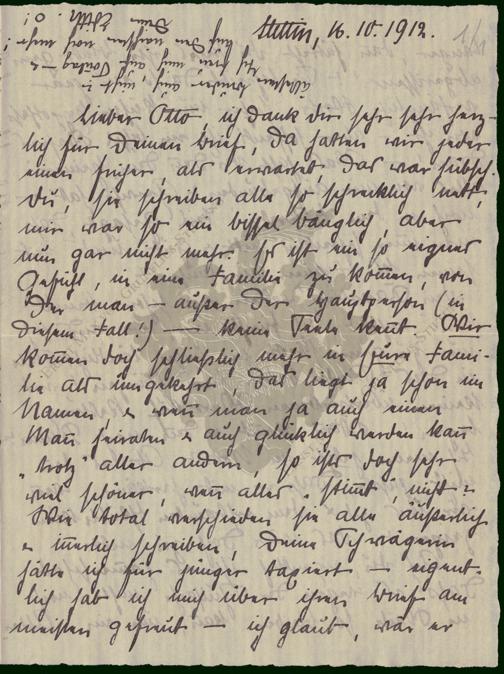 Stettin, 16.10.1912.
Lieber Otto, ich dank dir sehr sehr herz-
lich für Deinen Brief, da hatten wir jeder
einen früher, als erwartet. Das war hübsch.
Du, sie schreiben alle so schrecklich nett,
mir war so ein bissel bänglich, aber
nun gar nicht mehr. Es ist ein so eignes
Gefühl, in eine Familie zu kom̄en, von
der man – außer der Hauptperson (in
diesem Fall!) — keine Seele kennt. Wir
kom̄en doch schließlich mehr in Eure Fami-
lie als umgekehrt, das liegt ja schon im
Namen, & wen̄ man ja auch einen
Man̄ heiraten & auch glücklich werden kan̄
„trotz" aller andern, so ists doch sehr
viel schöner, wen̄ alles „stim̄t", nicht?
Wie total verschieden sie alle äußerlich
& in̄erlich schreiben, Deine Schwägerin
hätte ich für jünger taxiert — eigent-
lich hab ich mich über ihren Brief am
meisten gefreut — ich glaub, wär er
auf den nächsten noch mehr!
Deine Edith.